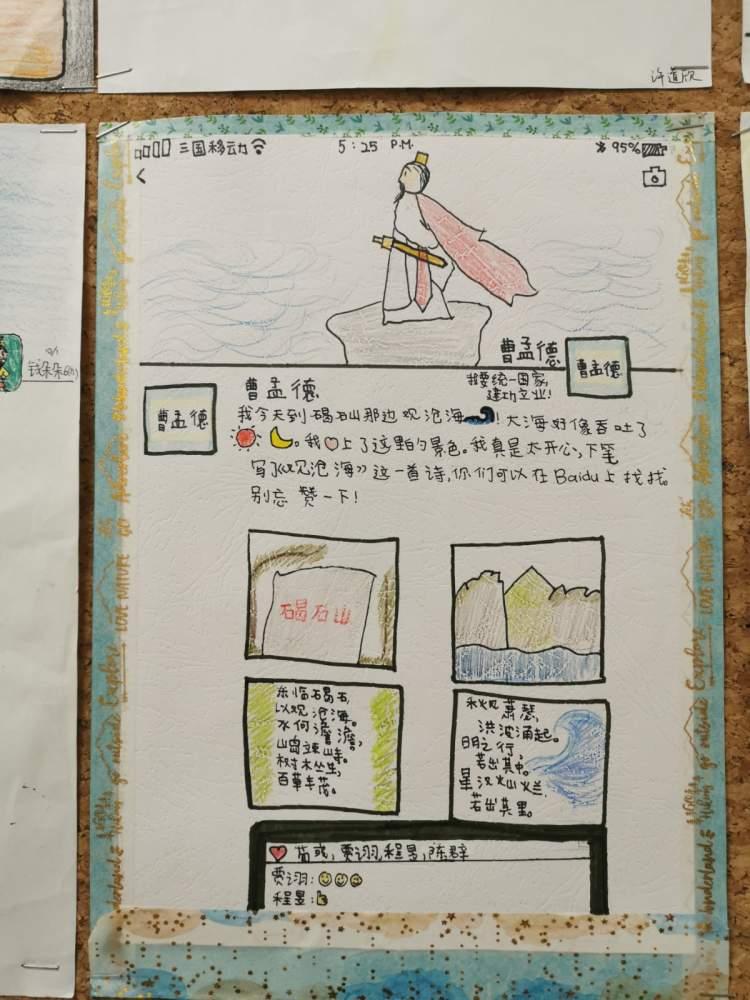 许道欣
三国移动
5:25 P.M.
95%
曹孟德
曹孟德
我要统一国家,
建功立业!
曹孟德
曹孟德
我今天到碣石山那边观沧海!大海好像吞吐了
。我上了这里的景色。我真是太开心,下笔
写了《观沧海》这一首诗,你们可以在Baidu上找找。
别忘赞一下!
碣石山
东临碣石,
以观沧海。
水何澹澹,
山岛竦峙。
树木丛生,
百草丰茂。
秋风萧瑟,
洪波涌起。
日月之行,
若出其中。
星汉灿烂,
若出其里。
荀彧,贾诩,程昱,陈群
贾诩:
程昱:
钱朵朵
Explore
go outside
Adventure
GO
LOVE NATURE
Explore
go outside
Wonderland &
Hiking
go outside
LOVE NATURE
Explore
go outside